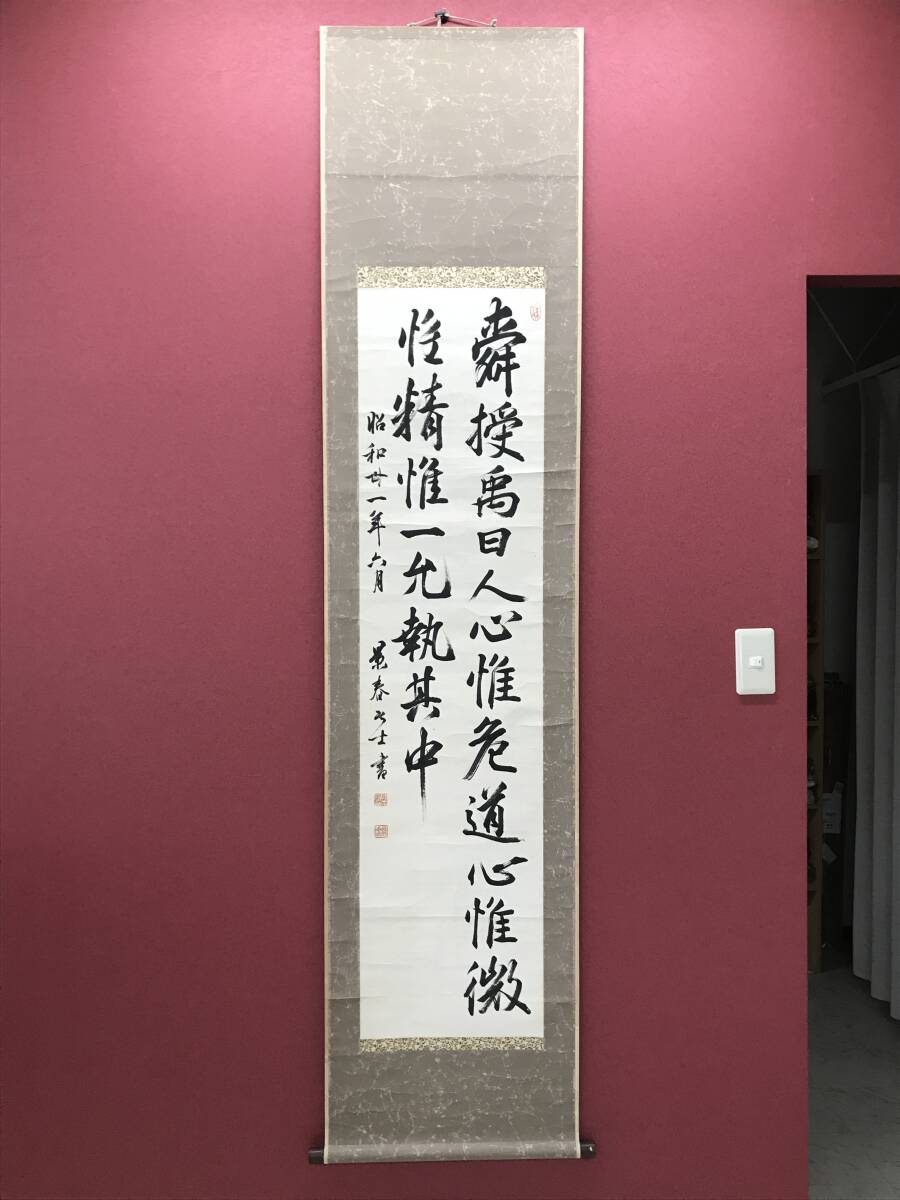 舜授禹曰人心惟危道心惟微
惟精惟一允執其中
昭和卅一年六月 景春居士書